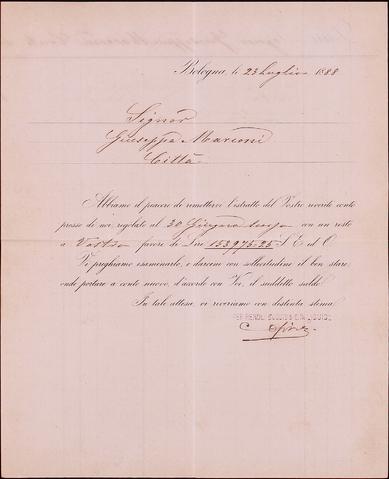 Bologna, le 23 Luglio 1888
Signor
Giuseppe Marconi
Città
Abbiamo il piacere di rimettervi l'estratto del Vostro riverito conto
presso di noi, regolato al 30 Giugno con un resto
a Vostro favore di Lire 153975.25 S. E. ed O.
Vi preghiamo esaminarlo, e darcene con sollecitudine il ben stare,
onde portare a conto nuovo, d'accordo con Voi, il suddetto saldo.
In tale attesa, vi riveriamo con distinta stima